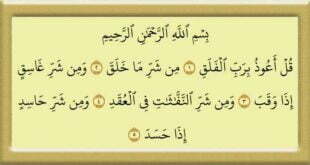 بِسْمِ ٱللَّهِ ٱلرَّحْمَٰنِ ٱلرَّحِيمِ
قُلْ أَعُوذُ بِرَبِّ ٱلْفَلَقِ ١ مِن شَرِّ مَا خَلَقَ ٢ وَمِن شَرِّ غَاسِقٍ
إِذَا وَقَبَ ٣ وَمِن شَرِّ ٱلنَّفَّٰثَٰتِ فِى ٱلْعُقَدِ ٤ وَمِن شَرِّ حَاسِدٍ
إِذَا حَسَدَ ٥